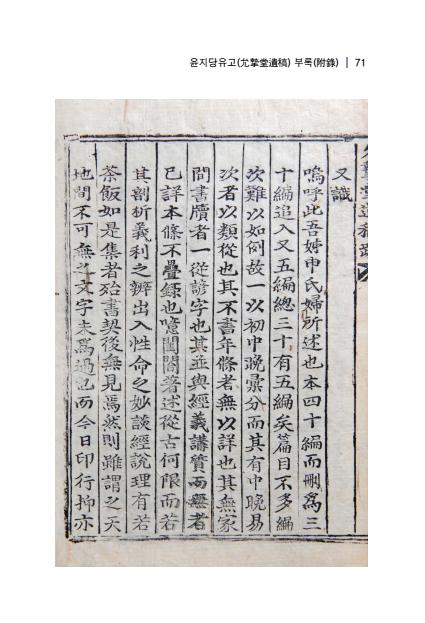 윤지당유고(允摯堂遺稿) 부록(附錄) | 71
又識
嗚呼此吾姊申氏婦所述也本四十編而刪爲三
十編追入又五編總三十有五編矣篇目不多編
次難以如例故一以初中晩彙分而其有中晩易
次者以類從也其不書年條者無以詳也其無家
問書牘者一從諺字也其並與經義講質而無者
已詳本條不疊錄也噫閨閤著述從古何限而若
其剖析義利之辨出入性命之妙談經說理有若
茶飯如是集者殆書契後無見焉然則雖謂之天
地間不可無之文字未爲過也而今日印行抑亦